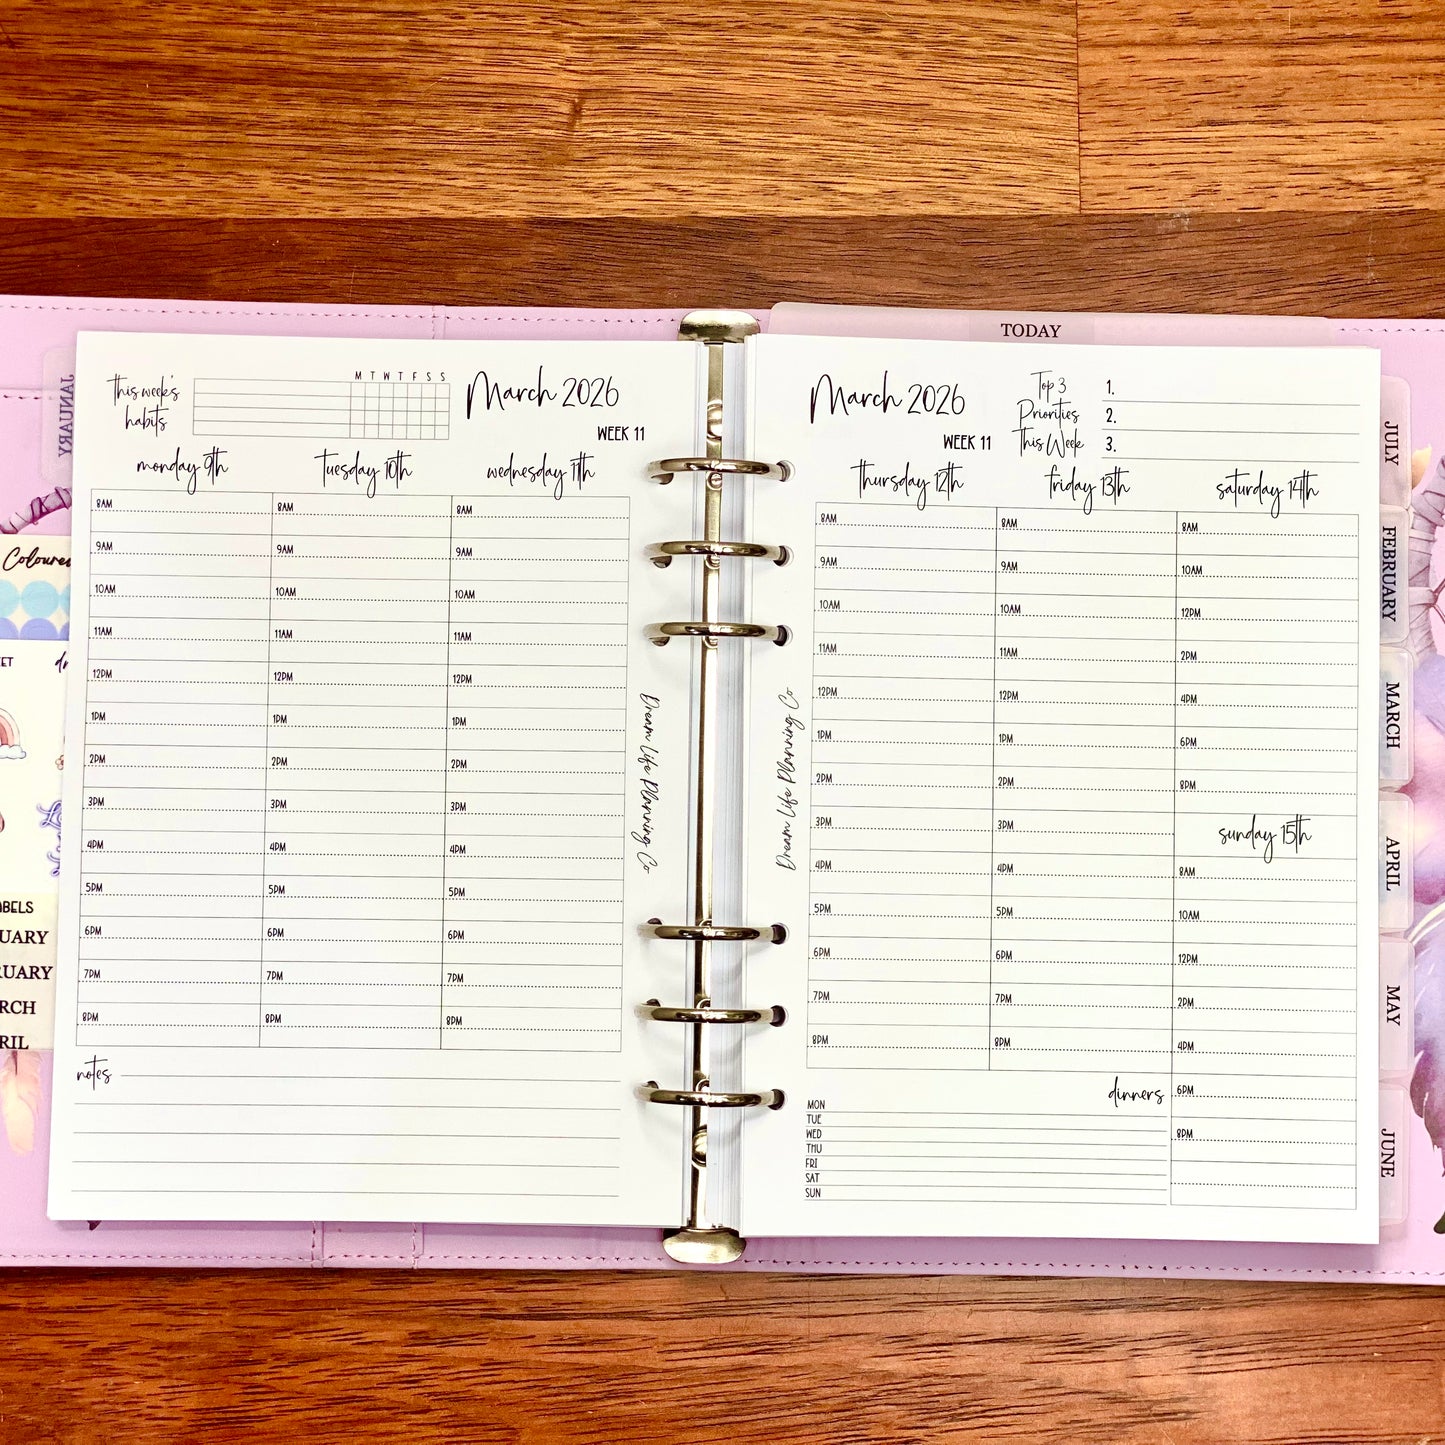 TODAY
JANUARY
This week's
habits
M T W T F S S
March 2026
WEEK 11
monday 9th
tuesday 10th
wednesday 11th
8AM 8AM 8AM
9AM 9AM 9AM
10AM 10AM 10AM
11AM 11AM 11AM
12PM 12PM 12PM
1PM 1PM 1PM
2PM 2PM 2PM
3PM 3PM 3PM
4PM 4PM 4PM
5PM 5PM 5PM
6PM 6PM 6PM
7PM 7PM 7PM
8PM 8PM 8PM
notes
Dream Life Planning Co
Coloured
ABELS
UARY
RUARY
RCH
RIL
Dream Life Planning Co
March 2026
WEEK 11
Top 3
Priorities
This Week
1.
2.
3.
thursday 12th
friday 13th
saturday 14th
8AM 8AM 8AM
9AM 9AM 10AM
10AM 10AM 12PM
11AM 11AM 2PM
12PM 12PM 4PM
1PM 1PM 6PM
2PM 2PM 8PM
3PM 3PM
sunday 15th
4PM 4PM 8AM
5PM 5PM 10AM
6PM 6PM 12PM
7PM 7PM 2PM
8PM 8PM 4PM
6PM
8PM
dinners
MON
TUE
WED
THU
FRI
SAT
SUN
JULY
FEBRUARY
MARCH
APRIL
MAY
JUNE